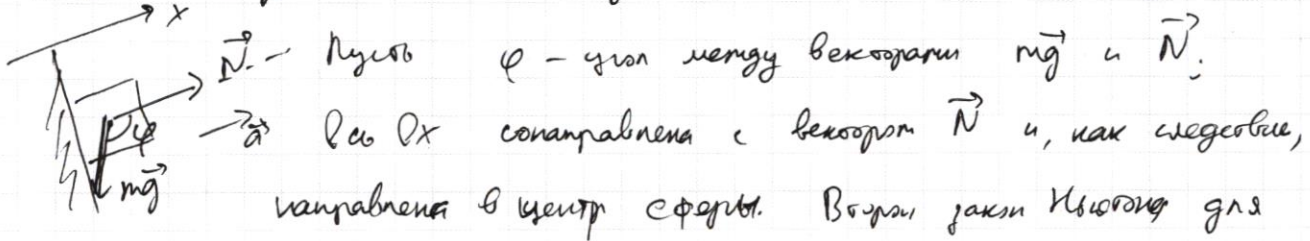 x
N⃗ - Пусть φ - угол между векторами mg⃗ и N⃗.
a⃗ Ось Ox сонаправлена с вектором N⃗ и, как следствие,
φ
mg⃗ направлена в центр сферы. Второй закон Ньютона для